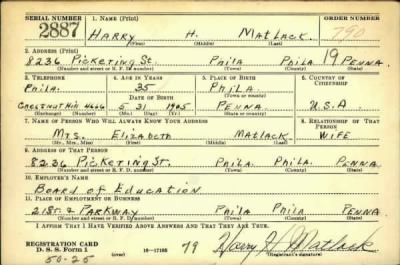 SERIAL NUMBER 1. NAME (Print) ORDER NUMBER
2887 HARRY H. MATLACK 790
(First) (Middle) (Last)
2. ADDRESS (Print)
8236 PICKERING St. Phila Phila 19 PENNA
(Number and street or R. F. D. number) (Town) (County) (State)
3. TELEPHONE 4. AGE IN YEARS 5. PLACE OF BIRTH 6. COUNTRY OF CITIZENSHIP
Phila. 35 PhiLA
DATE OF BIRTH (Town or county)
CHESTNUT Hill 4666 5 31 1905 PENNA. U.S.A
(Exchange) (Number) (Mo.) (Day) (Yr.) (State or country)
7. NAME OF PERSON WHO WILL ALWAYS KNOW YOUR ADDRESS 8. RELATIONSHIP OF THAT PERSON
MRS. Elizabeth MATLACK WIFE
(Mr., Mrs., Miss) (First) (Middle) (Last)
9. ADDRESS OF THAT PERSON
8236 PICKERING St. Phila. Phila. PENNA
(Number and street or R. F. D. number) (Town) (County) (State)
10. EMPLOYER'S NAME
BOARD of EDUCATION
11. PLACE OF EMPLOYMENT OR BUSINESS
21St & PARKWAY Phila Phila PENNA
(Number and street or R. F. D. number) (Town) (County) (State)
I AFFIRM THAT I HAVE VERIFIED ABOVE ANSWERS AND THAT THEY ARE TRUE.
REGISTRATION CARD
D. S. S. Form 1 (over) 16—17105 79 Harry H Matlack
50-25 (Registrant's signature)